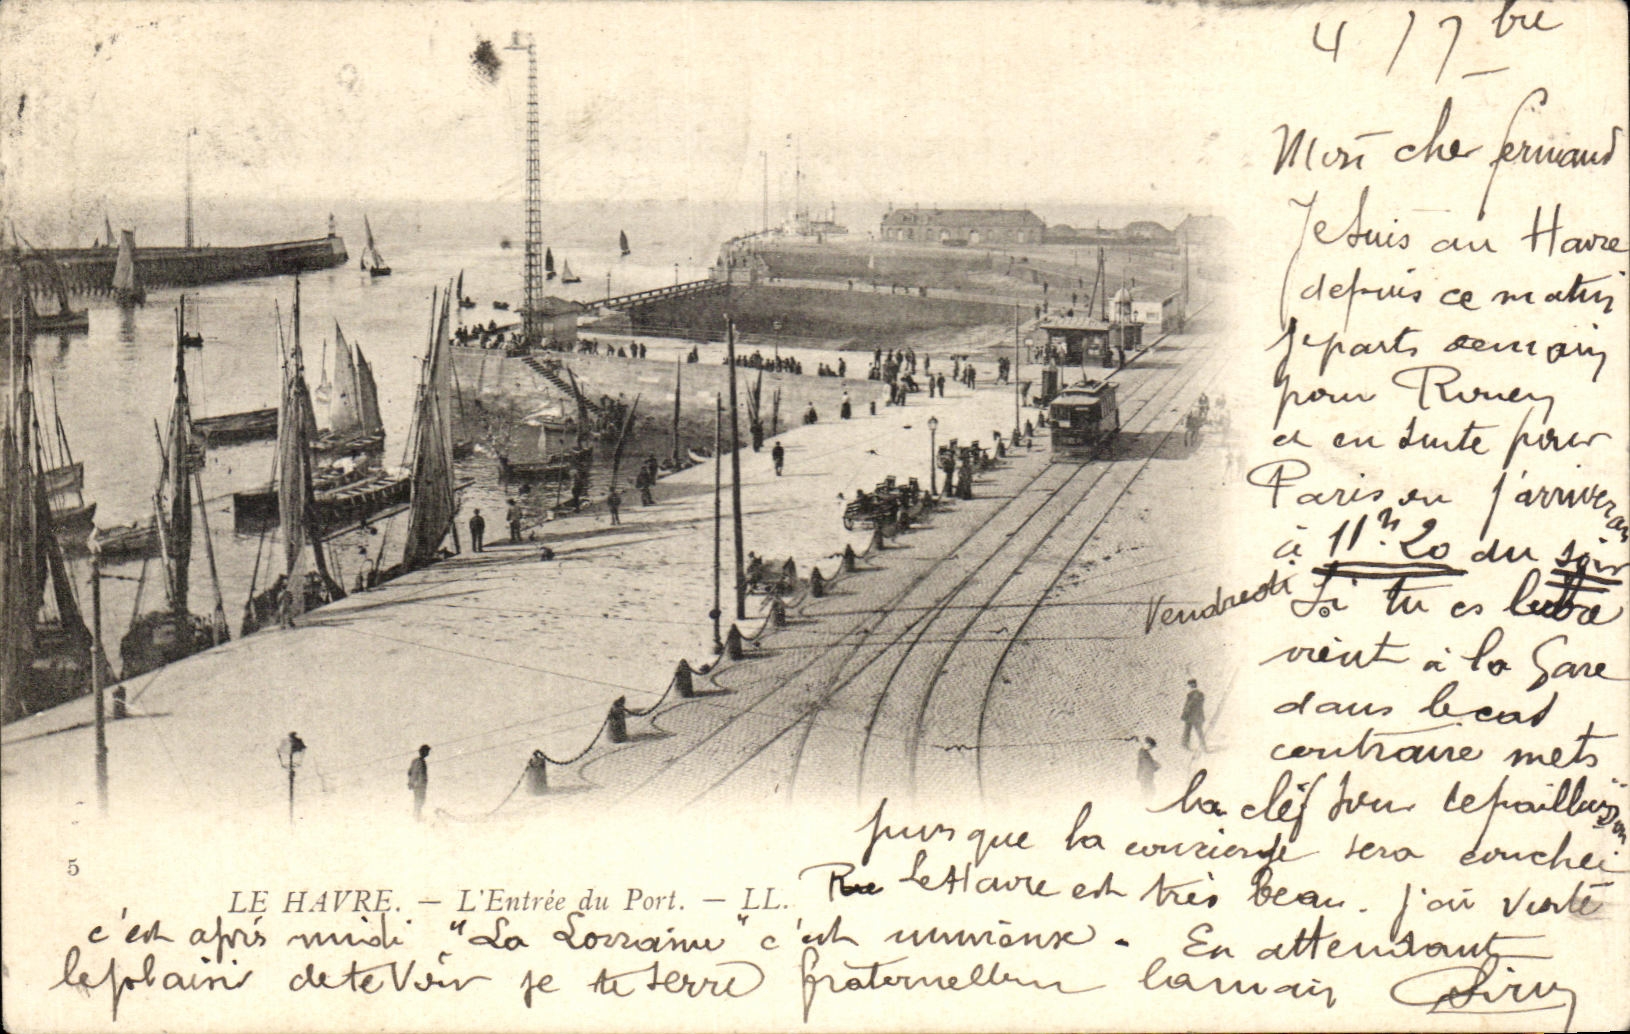 4 / 7bre
Mon cher Fernand
Je suis au Havre
depuis ce matin
Je parts demain
pour Rouen
et en suite pour
Paris ou j'arriverai
à 11h.20 du soir
Vendredi Si tu es libre
vient à la Gare
dans le cas
contraire mets
la cléf sour le paillasson
puisque la concierge sera couchée
5
LE HAVRE. — L'Entrée du Port. — LL.
Le Havre est très beau. j'ai visité
c'est après midi "La Lorraine" c'est
. En attendant
le plaisir de te Voir je te serre fraternellem la main